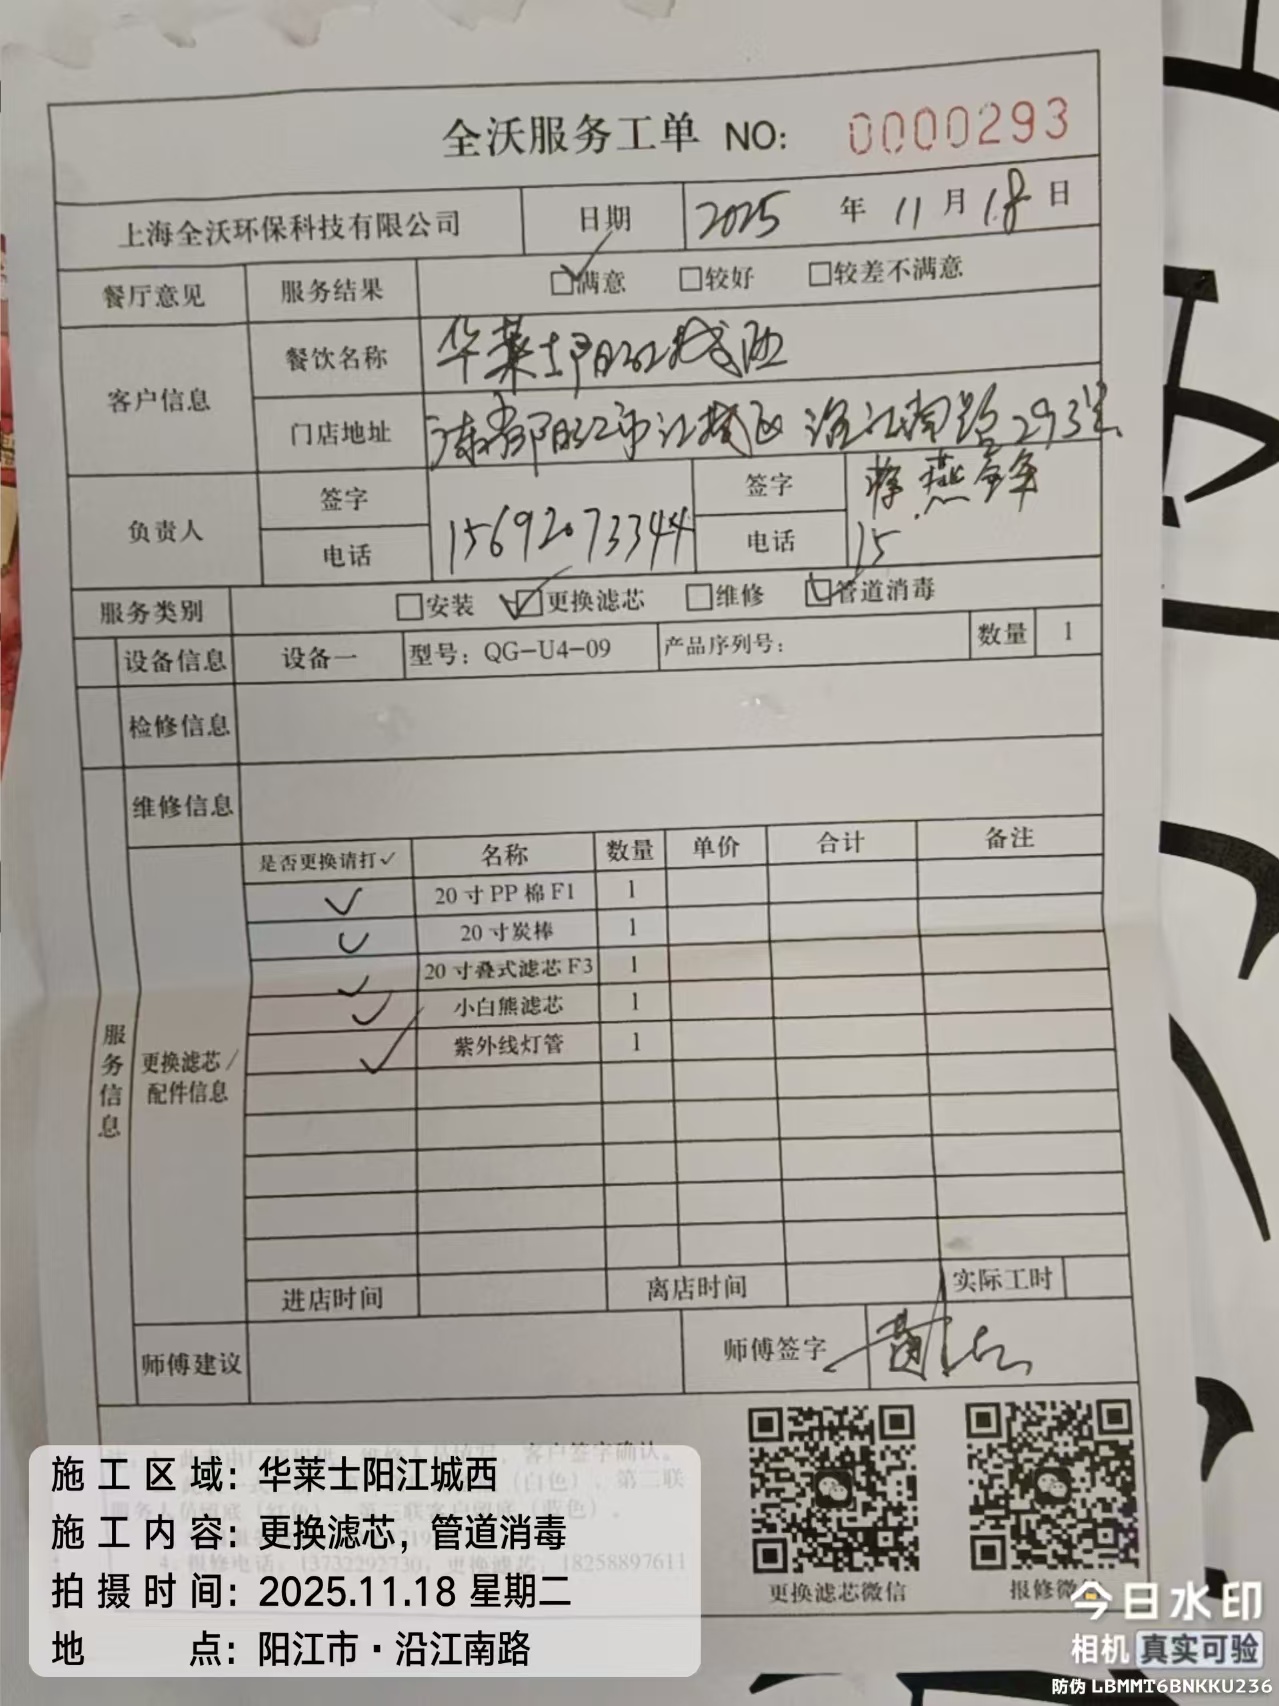 全沃服务工单 NO: 0000293
上海全沃环保科技有限公司 日期 2025 年 11 月 18 日
餐厅意见 服务结果 ☑满意 □较好 □较差不满意
客户信息 餐饮名称 华莱士阳江城西
门店地址 阳江市江城区 沿江南路293号
负责人 签字 签字
电话 15692073344 电话 15
服务类别 □安装 ☑更换滤芯 □维修 ☑管道消毒
设备信息 设备一 型号：QG-U4-09 产品序列号： 数量 1
检修信息
维修信息
服务信息
更换滤芯/配件信息
是否更换请打✓ 名称 数量 单价 合计 备注
✓ 20寸PP棉F1 1
✓ 20寸炭棒 1
✓ 20寸叠式滤芯F3 1
✓ 小白熊滤芯 1
✓ 紫外线灯管 1
进店时间 离店时间 实际工时
师傅建议 师傅签字
客户签字确认。
（白色），第二联
（红色），第三联客户留底（蓝色）。
4、报修电话：13732292730；更换滤芯：18258897611
更换滤芯微信 报修微信
施工区域：华莱士阳江城西
施工内容：更换滤芯，管道消毒
拍摄时间：2025.11.18 星期二
地点：阳江市·沿江南路
今日水印
相机 真实可验
防伪 LBMMT6BNKKU236